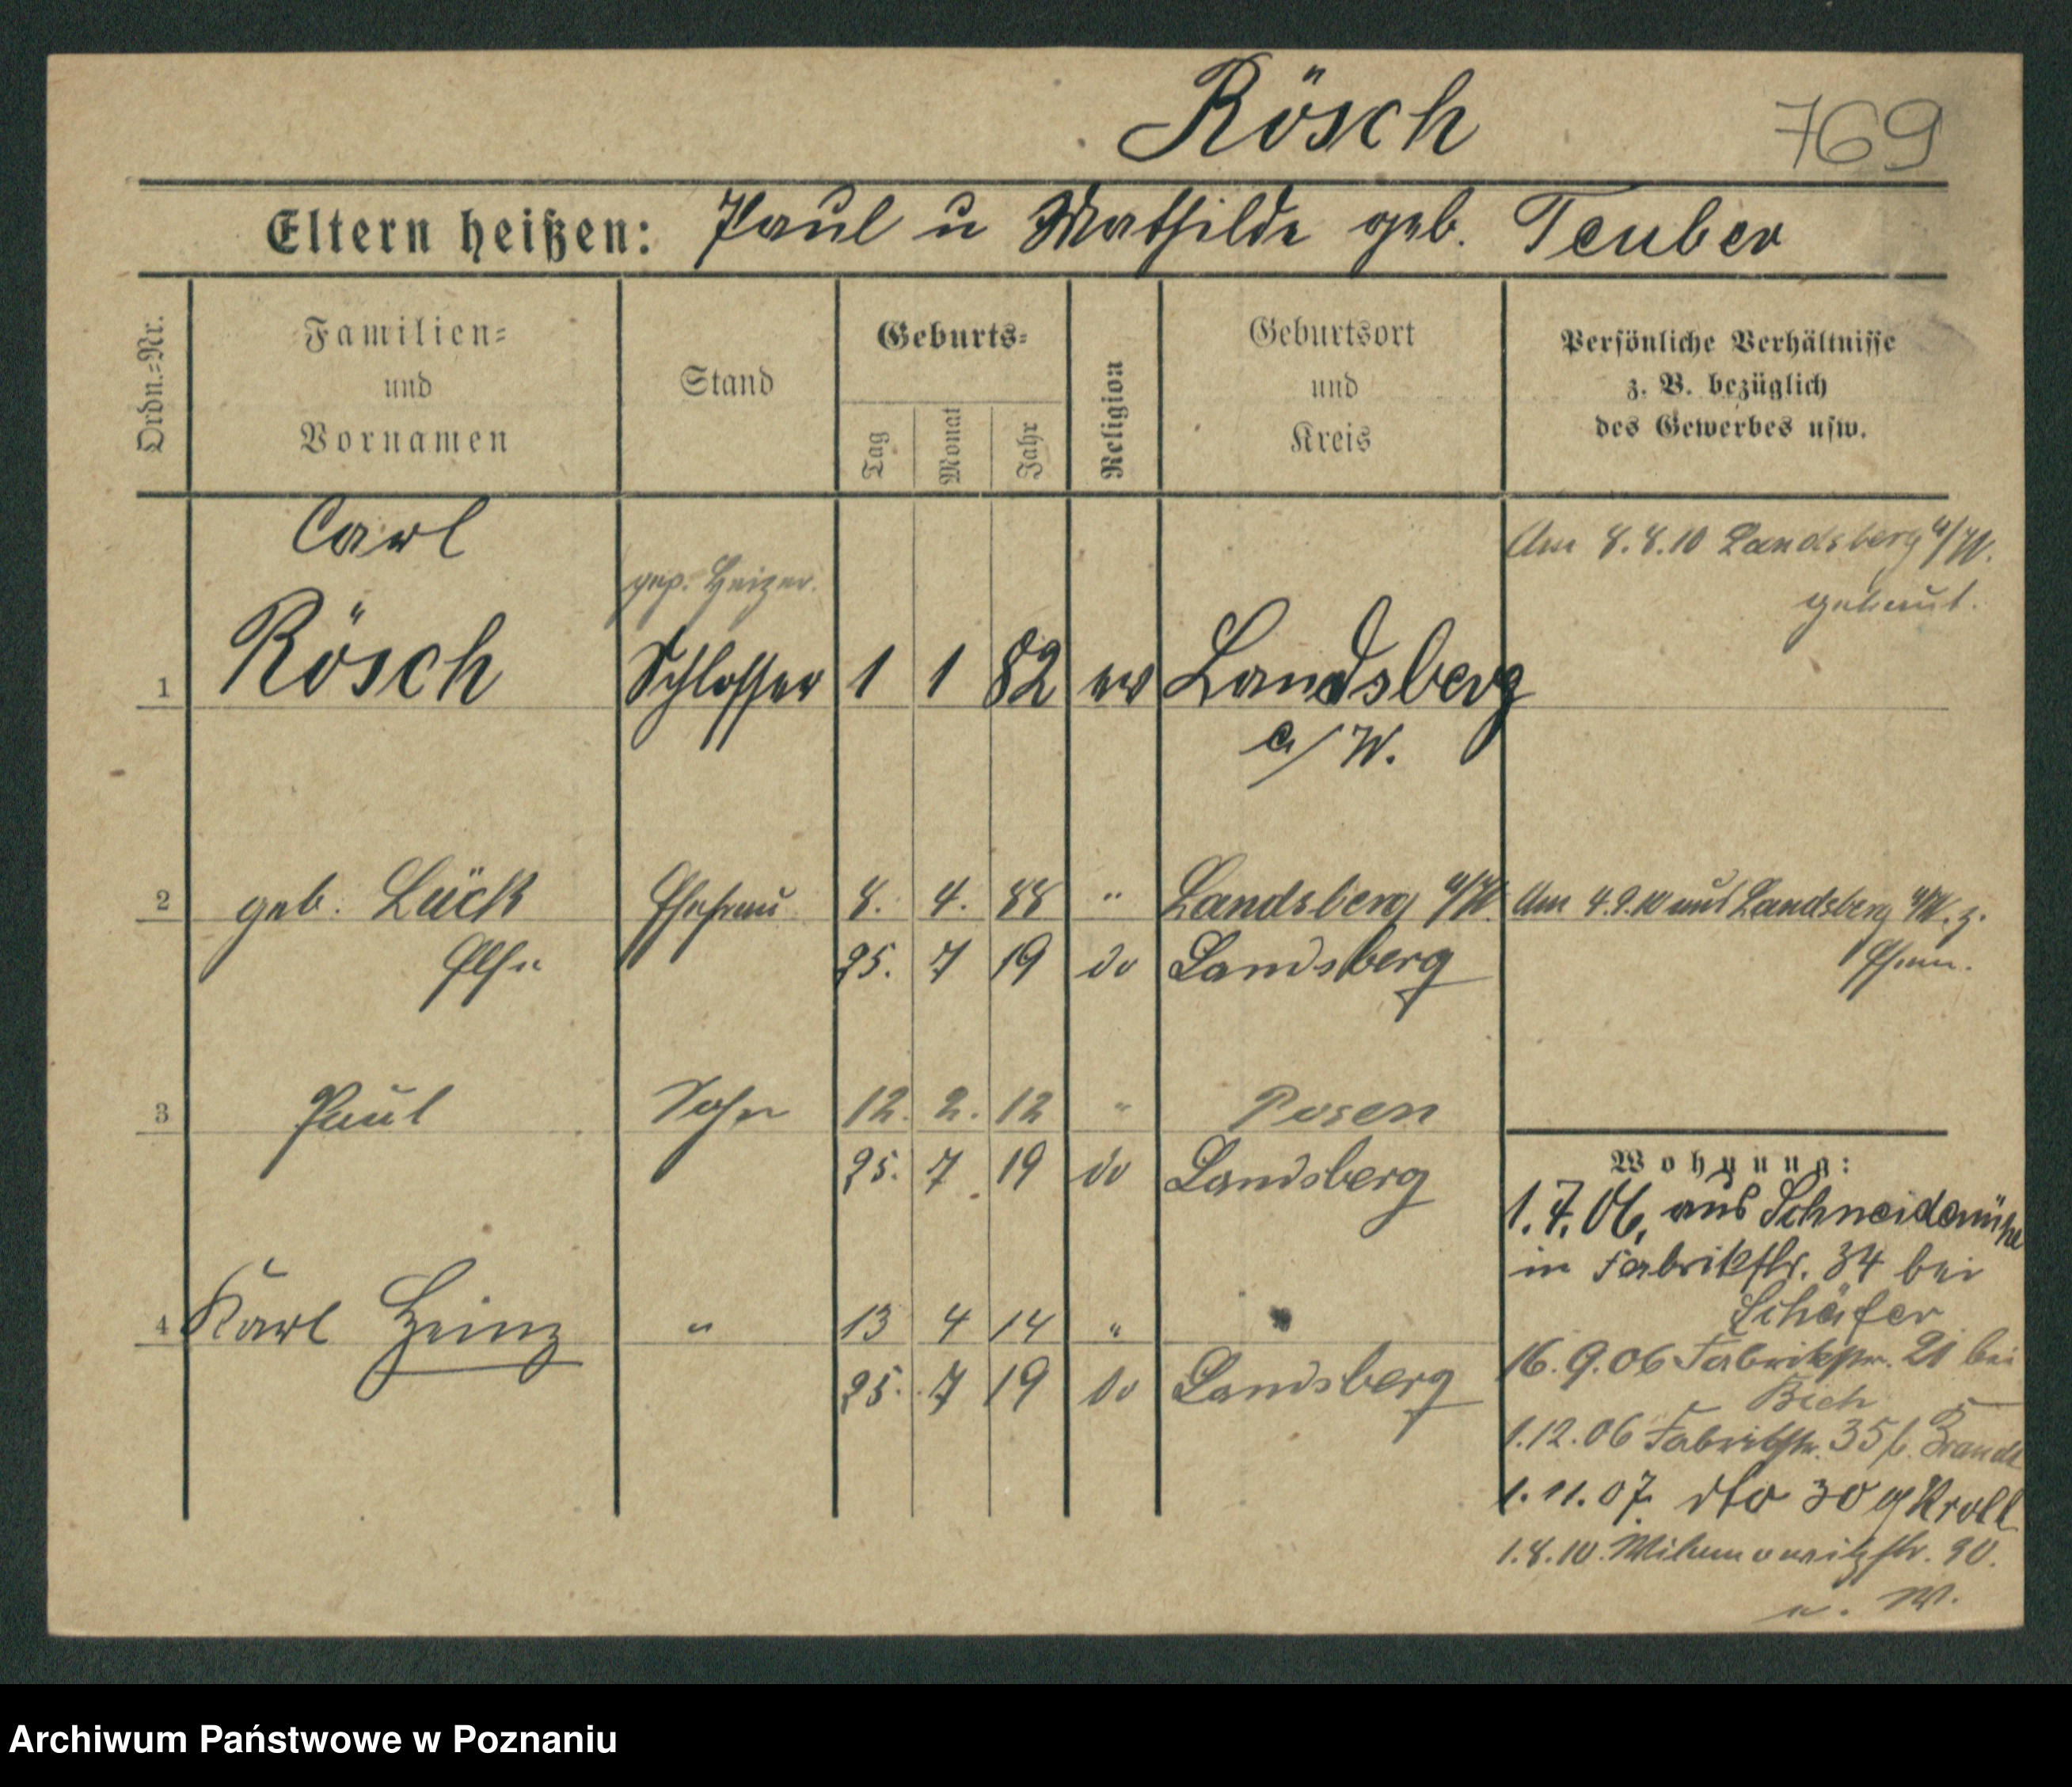 Rösch
769
Eltern heißen: Paul u Mathilde geb. Teuber
Ordn.=Nr.
Familien=
und
Vornamen
Stand
Geburts=
Tag
Monat
Jahr
Religion
Geburtsort
und
Kreis
Persönliche Verhältnisse
z. B. bezüglich
des Gewerbes usw.
Carl
gep. Heizer.
Am 8.8.10 Landsberg a/W.
getraut.
1 Rösch Schlosser 1 1 82 ev Landsberg
a/W.
2 geb. Lück Ehefrau 8. 4. 88 " Landsberg a/W. Am 4.9.10 aus Landsberg a/W. z.
Else 25. 7 19 do Landsberg Ehem.
3 Paul Sohn 12. 2. 12 " Posen
25. 7 19 do Landsberg
4 Karl Heinz " 13 4 14 "
25. 7 19 do Landsberg
Wohnung:
1.7.06. aus Schneidemühl
in Fabrikstr. 34 bei
Schäfer
16.9.06 Fabrikstr. 21 bei
1.12.06 Fabrikstr. 35 b. Brandt
1.11.07. dto 30 Kroll
1.8.10. 90.
u. W.
Archiwum Państwowe w Poznaniu